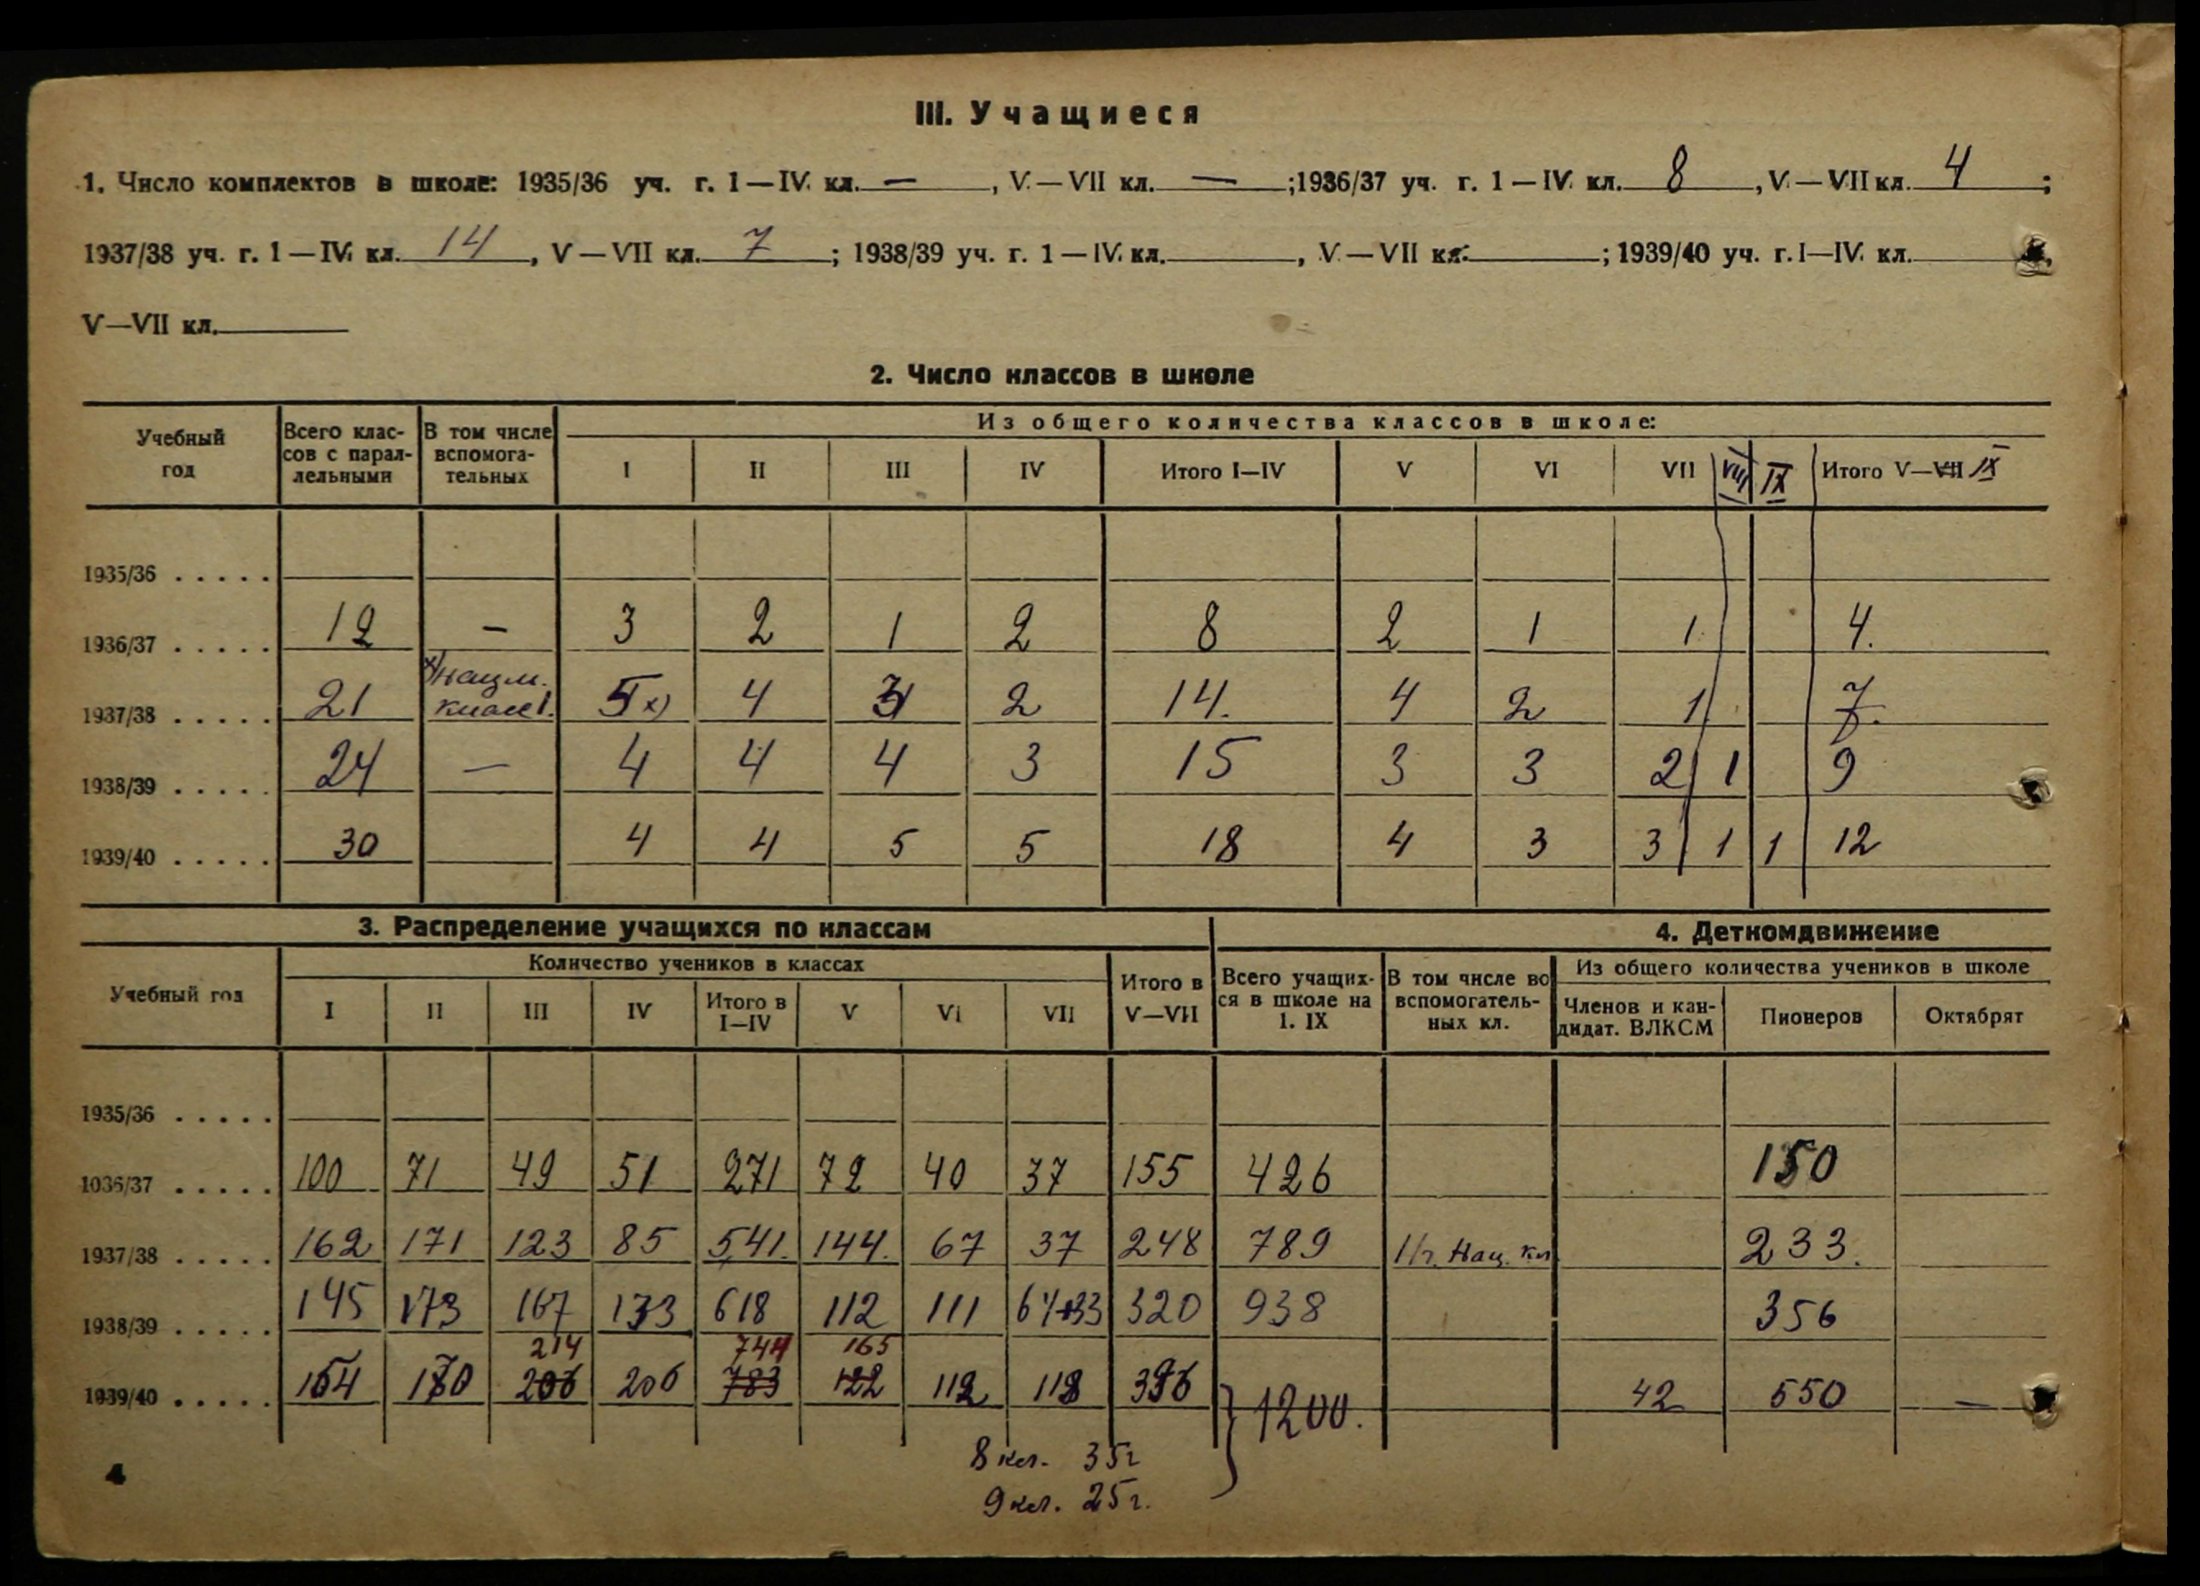 III. Учащиеся
1. Число комплектов в школе: 1935/36 уч. г. 1—IV кл. — , V—VII кл. — ; 1936/37 уч. г. 1—IV кл. 8 , V—VII кл. 4 ;
1937/38 уч. г. 1—IV кл. 14 , V—VII кл. 7 ; 1938/39 уч. г. 1—IV кл. , V—VII кл. ; 1939/40 уч. г. I—IV кл. ,
V—VII кл.
2. Число классов в школе
Учебный год | Всего классов с параллельными | В том числе вспомогательных | Из общего количества классов в школе:
I | II | III | IV | Итого I—IV | V | VI | VII | VIII | IX | Итого V—VII IX
1935/36 . . . . .
1936/37 . . . . . 12 — 3 2 1 2 8 2 1 1 4.
1937/38 . . . . . 21 х) нацм. класс 1. 5 х) 4 3 2 14. 4 2 1 7.
1938/39 . . . . . 24 — 4 4 4 3 15 3 3 2 1 9
1939/40 . . . . . 30 4 4 5 5 18 4 3 3 1 1 12
3. Распределение учащихся по классам
4. Деткомдвижение
Учебный год | Количество учеников в классах | Итого в V—VII | Всего учащихся в школе на 1. IX | В том числе во вспомогательных кл. | Из общего количества учеников в школе
I | II | III | IV | Итого в I—IV | V | VI | VII | Членов и кандидат. ВЛКСМ | Пионеров | Октябрят
1935/36 . . . . .
1036/37 . . . . . 100 71 49 51 271 72 40 37 155 426 150
1937/38 . . . . . 162 171 123 85 541. 144. 67 37 248 789 Нац. кл 233.
1938/39 . . . . . 145 173 167 133 618 112 111 64+33 320 938 356
214 744 165
1939/40 . . . . . 154 170 206 206 783 122 112 118 396 1200. 42 550 —
8 кл. 35
9 кл. 25
4